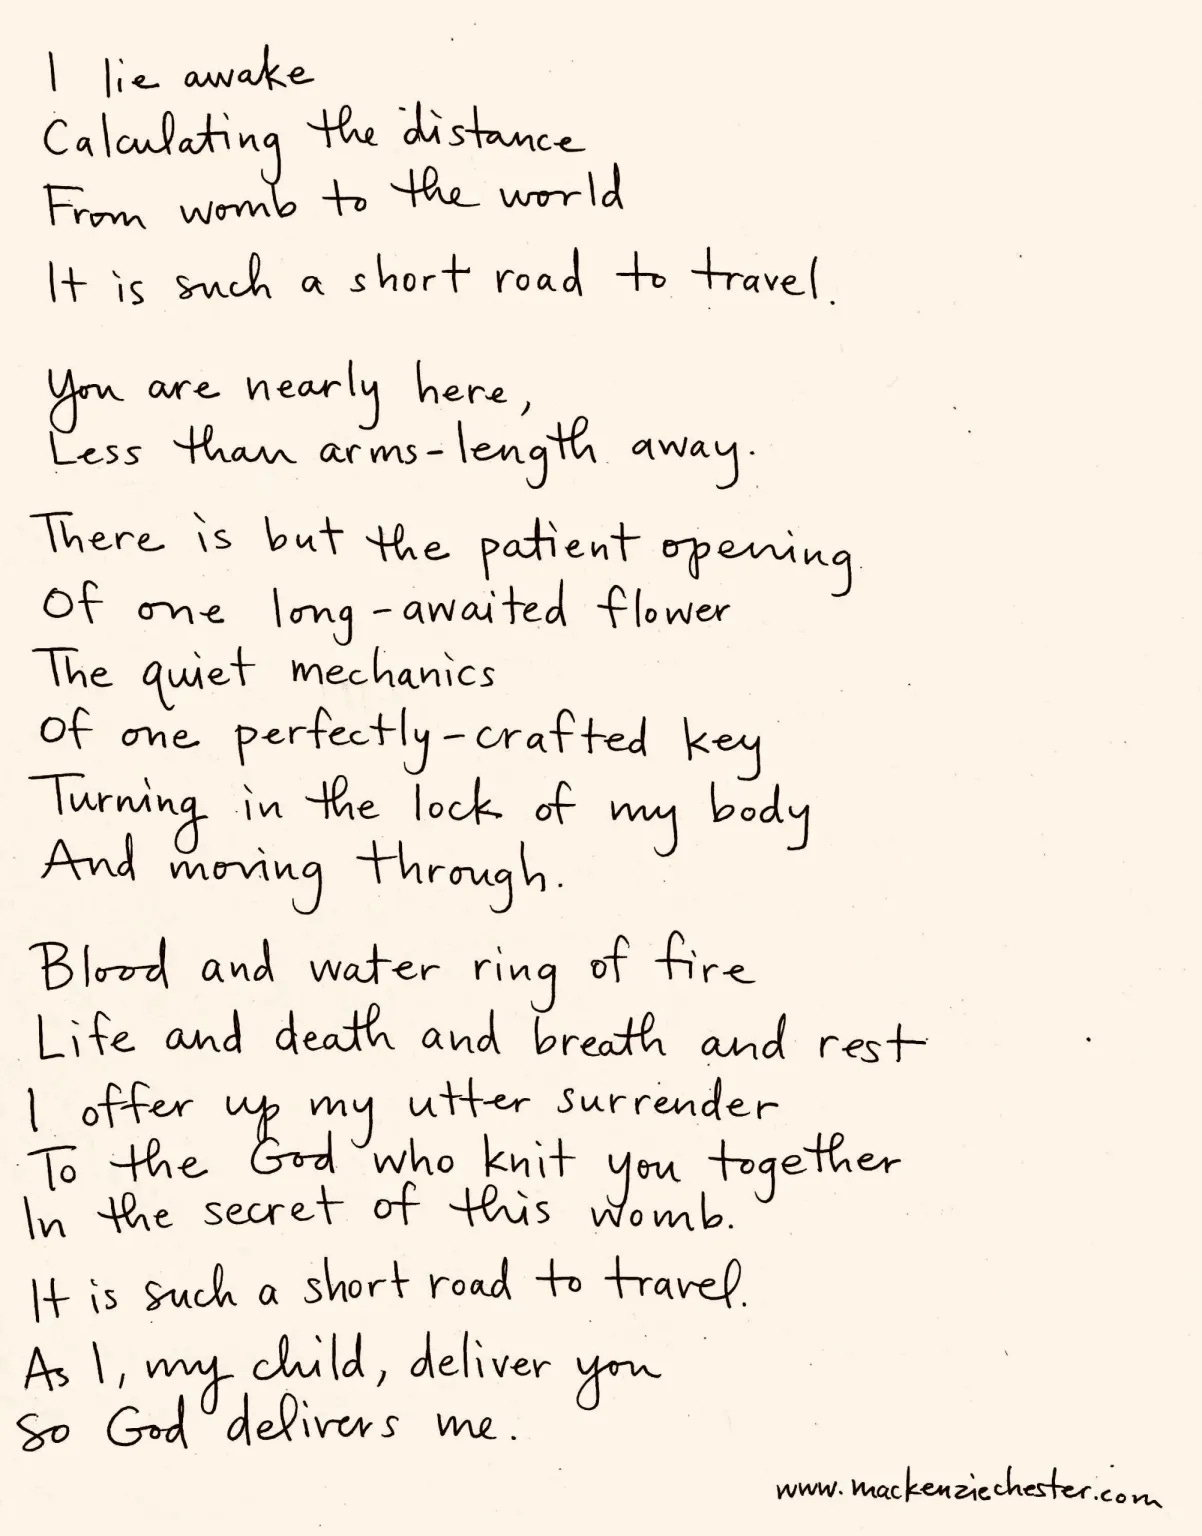 I lie awake
Calculating the distance
From womb to the world
It is such a short road to travel.
You are nearly here,
Less than arms-length away.
There is but the patient opening
Of one long-awaited flower
The quiet mechanics
Of one perfectly-crafted key
Turning in the lock of my body
And moving through.
Blood and water ring of fire
Life and death and breath and rest
I offer up my utter surrender
To the God who knit you together
In the secret of this womb.
It is such a short road to travel.
As I, my child, deliver you
So God delivers me.
www.mackenziechester.com